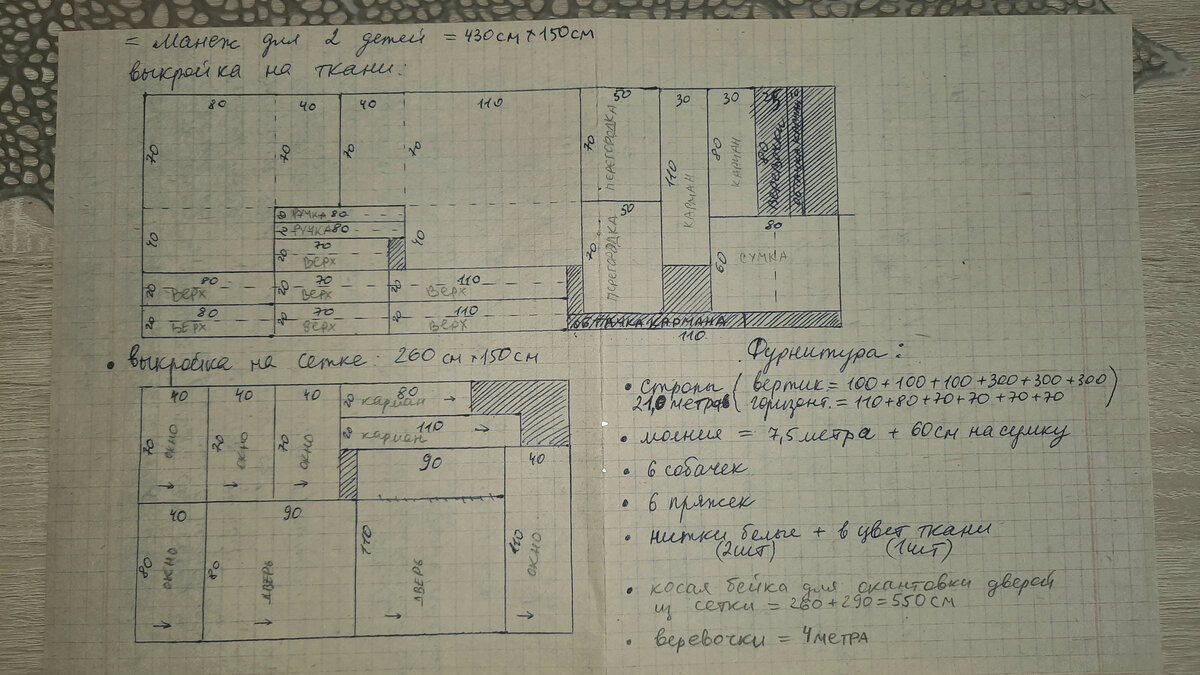 = Манеж для 2 детей = 430см × 150см
выкройка на ткани:
80 40 40 110 50 30 30 25 10
70 70 70 70 70 ПЕРЕГОРОДКА 110 КАРМАН 80 КАРМАН 80
40 20 РУЧКА 80 40 50
10 РУЧКА 80
70 ПЕРЕГОРОДКА 80
20 70 60 СУМКА
ВЕРХ
20 80 20 70 20 110
ВЕРХ ВЕРХ ВЕРХ
20 80 20 70 20 110
ВЕРХ ВЕРХ ВЕРХ
ОБТАЧКА КАРМАНА
110
• выкройка на сетке: 260 см × 150см
40 40 40 80
20 карман
70 ОКНО 70 ОКНО 70 ОКНО 20 110
карман
90 40
40 90
80 ОКНО 80 ДВЕРЬ 110 ДВЕРЬ 110 ОКНО
Фурнитура:
• стропы ( вертик = 100 + 100 + 100 + 300 + 300 + 300 )
21,0 метров ( горизонт. = 110 + 80 + 70 + 70 + 70 + 70
• молния = 7,5 метра + 60см на сумку
• 6 собачек
• 6 пряжек
• нитки белые + в цвет ткани
(2шт) (1шт)
• косая бейка для окантовки дверей
из сетки = 260 + 290 = 550 см
• веревочки = 4 метра